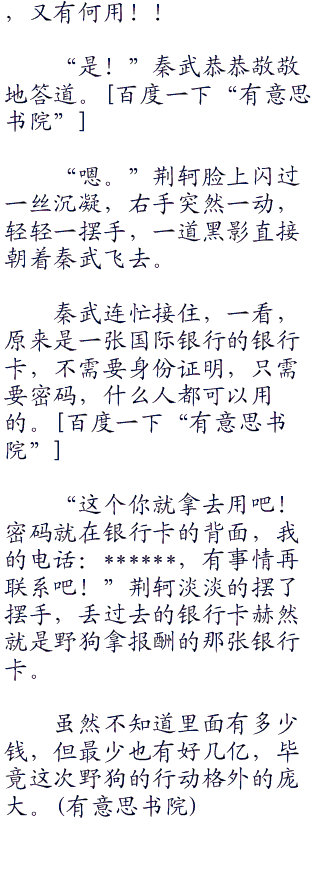 ，又有何用！！
“是！”秦武恭恭敬敬
地答道。[百度一下“有意思
书院”]
“嗯。”荆轲脸上闪过
一丝沉凝，右手突然一动，
轻轻一摆手，一道黑影直接
朝着秦武飞去。
秦武连忙接住，一看，
原来是一张国际银行的银行
卡，不需要身份证明，只需
要密码，什么人都可以用
的。[百度一下“有意思书
院”]
“这个你就拿去用吧！
密码就在银行卡的背面，我
的电话：******，有事情再
联系吧！”荆轲淡淡的摆了
摆手，丢过去的银行卡赫然
就是野狗拿报酬的那张银行
卡。
虽然不知道里面有多少
钱，但最少也有好几亿，毕
竟这次野狗的行动格外的庞
大。(有意思书院)